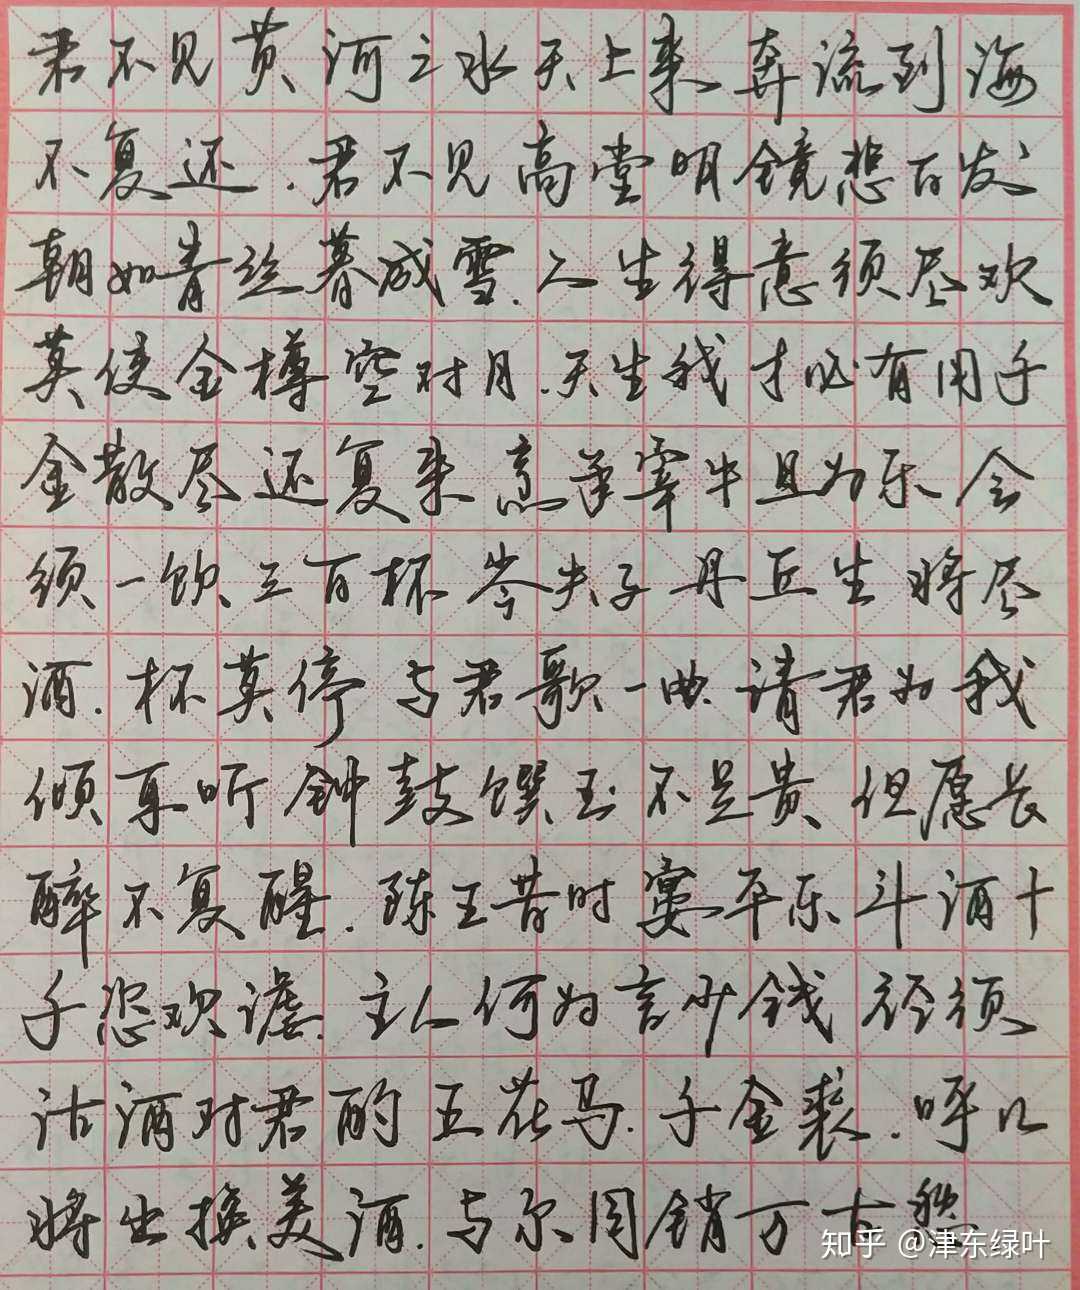 君不见黄河之水天上来奔流到海
不复还.君不见高堂明镜悲白发
朝如青丝暮成雪.人生得意须尽欢
莫使金樽空对月.天生我才必有用千
金散尽还复来烹羊宰牛且为乐会
须一饮三百杯岑夫子丹丘生将尽
酒.杯莫停与君歌一曲.请君为我
倾耳听钟鼓馔玉不足贵但愿长
醉不复醒.陈王昔时宴平乐斗酒十
千恣欢谑.主人何为言少钱径须
沽酒对君酌五花马.千金裘.呼儿
将出换美酒.与尔同销万古愁
知乎 @津东绿叶